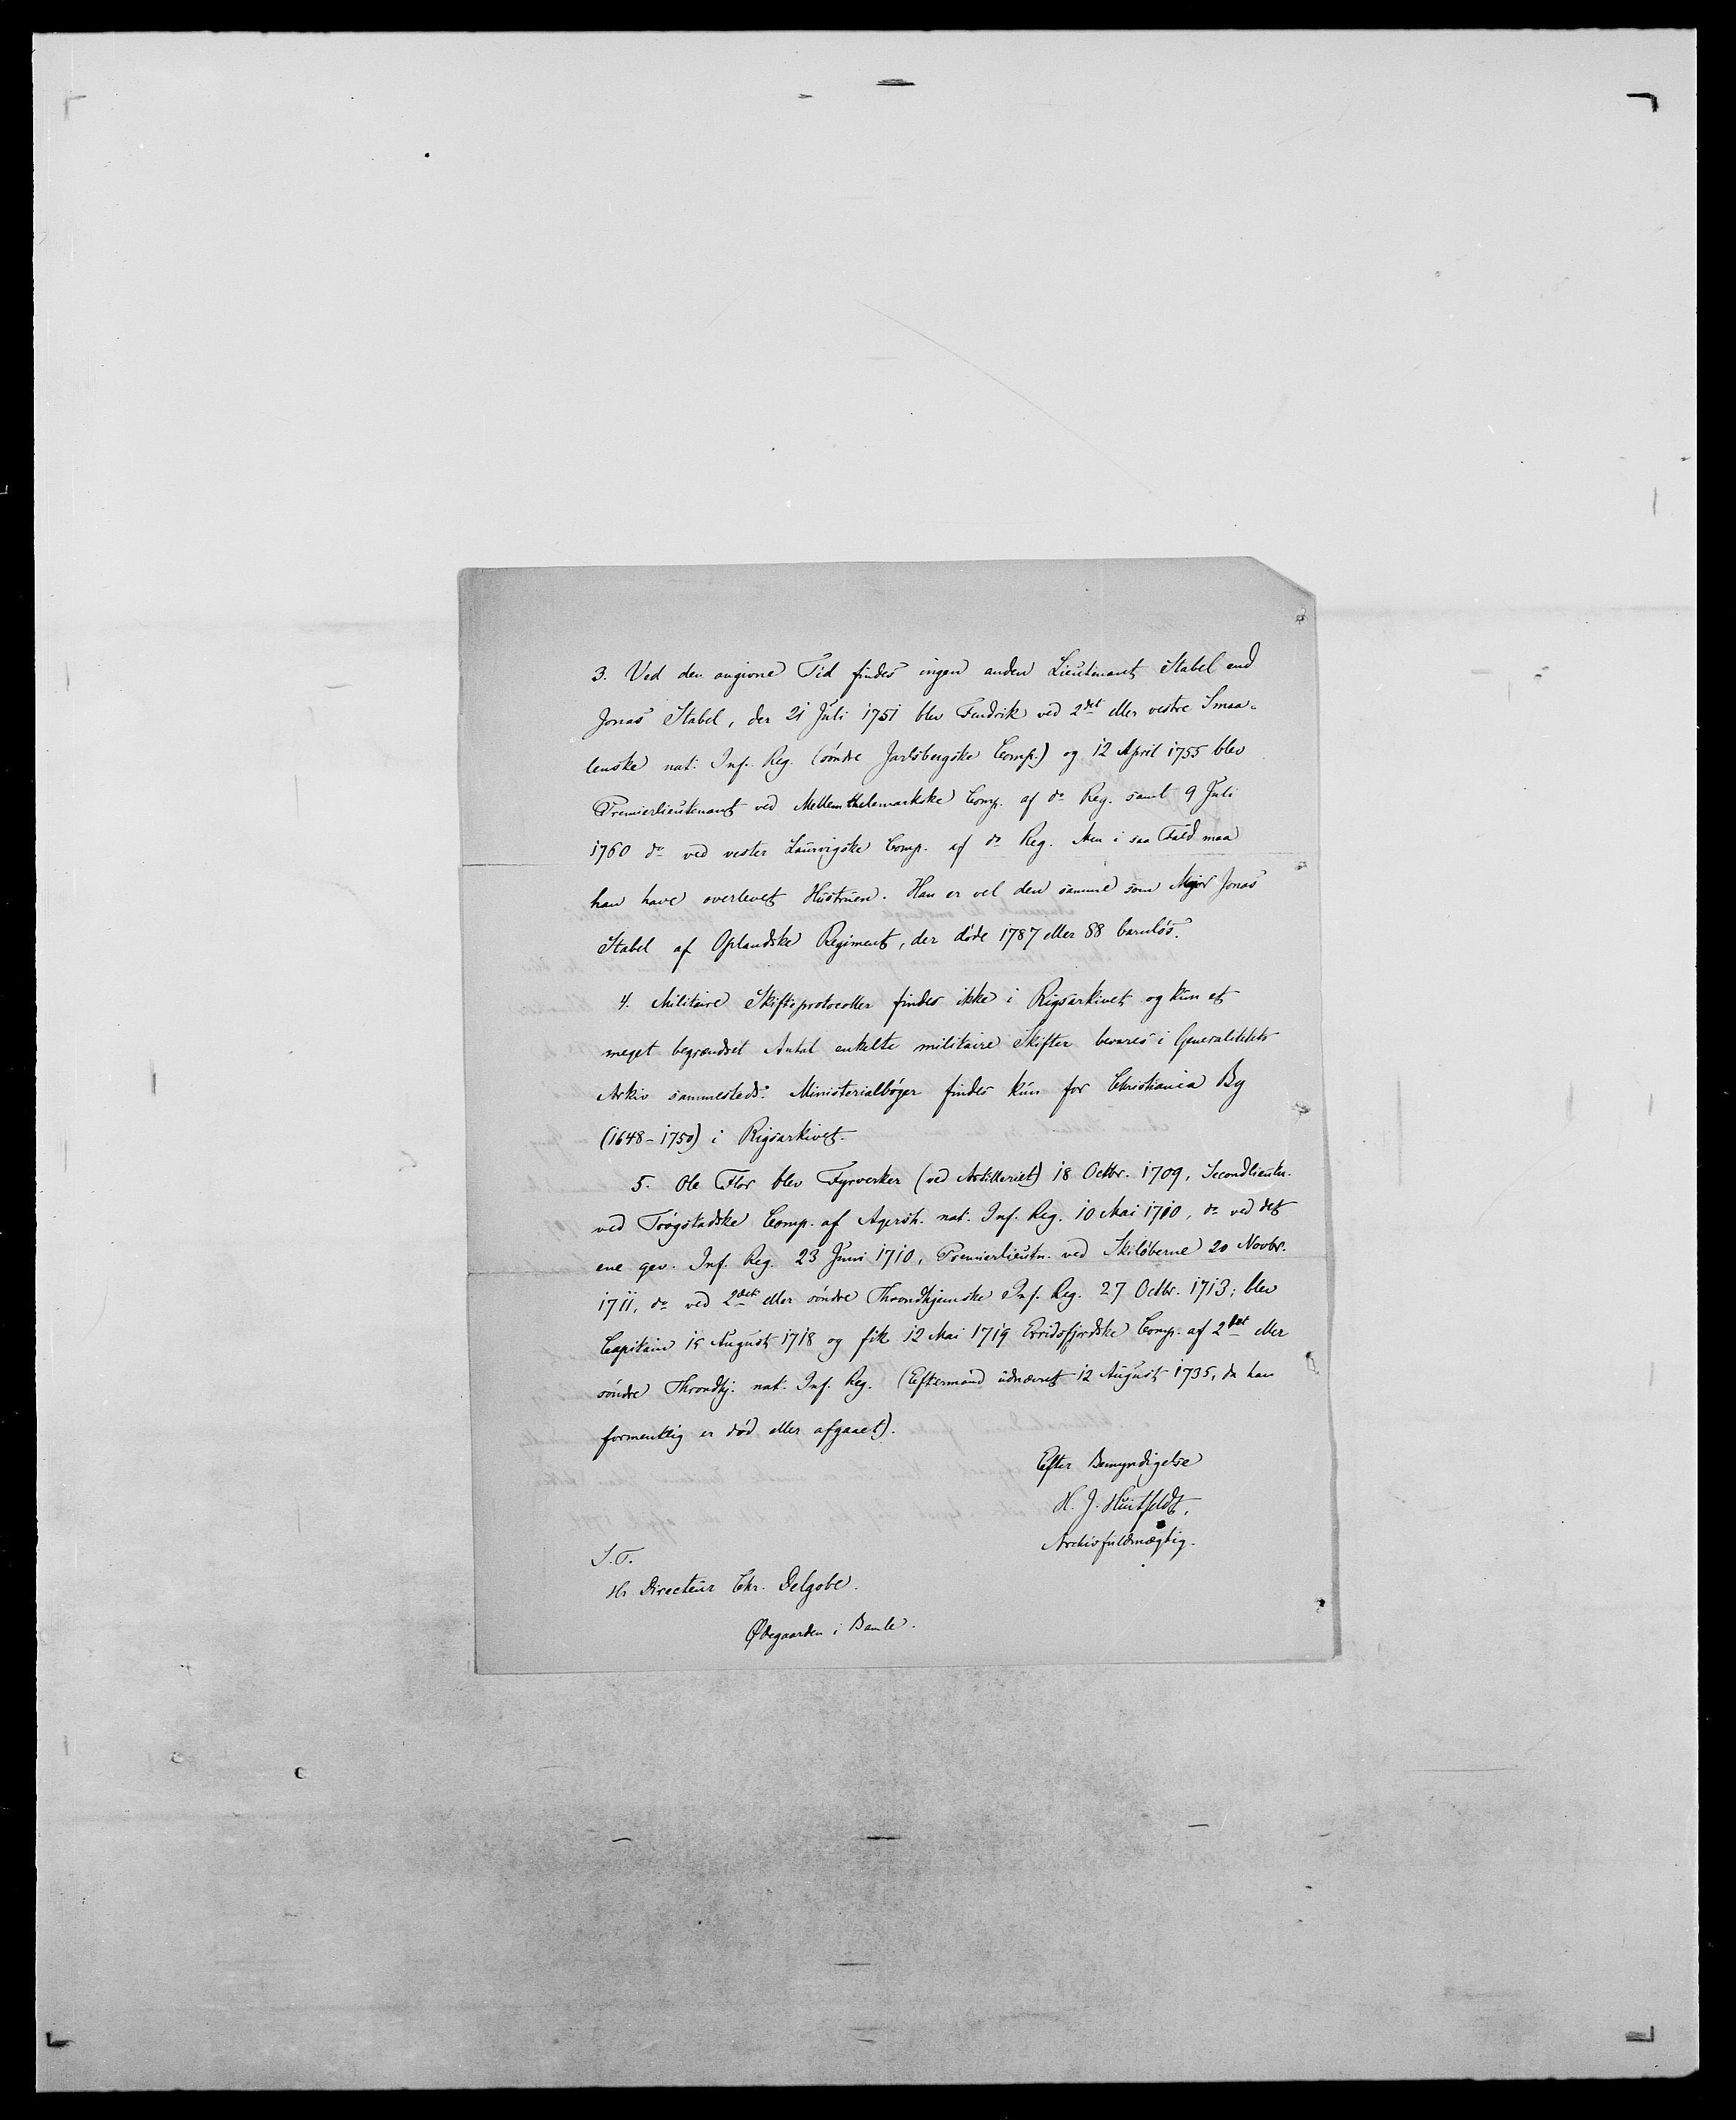 3. Ved den angivne Tid findes ingen anden Lieutenant Stabel end
Jonas Stabel, der 21 Juli 1751 blev Fendrik ved 2det eller vestre Smaa-
lenske nat. Inf. Reg. (søndre Jarlsbergske Comp.) og 12 April 1755 blev
Premierlieutenant ved Mellem thelemarkske Comp. af do Reg. samt 9 Juli
1760 do ved vester Laurvigske Comp. af do Reg. Men i saa Fald maa
han have overlevet Hustruen. Han er vel den samme som Major Jonas
Stabel af Oplandske Regiment, der døde 1787 eller 88 barnløs.
4. Militaire Skifteprotocoller findes ikke i Rigsarkivet og kun et
meget begrændset Antal enkelte militaire Skifter bevares i Generalitetets
Arkiv sammesteds. Ministerialbøger findes kun for Christiania By
(1648-1750) i Rigsarkivet.
5. Ole Flor blev Fyrverker (ved Artilleriet) 18 Octbr. 1709, Secondlieutn.
ved Trøgstadske Comp. af Agersh. nat. Inf. Reg. 10 Mai 1710, do ved det
ene gev. Inf. Reg. 23 Juni 1710, Premierlieutn. ved Skiløberne 20 Novbr.
1711, do ved 2det eller søndre Throndhjemske Inf. Reg. 27 Octbr. 1713; blev
Capitain 15 August 1718 og fik 12 Mai 1719 Comp. af 2det eller
søndre Throndhj. nat. Inf. Reg. (Eftermand udnævnt 12 August 1735, da han
formentlig er død eller afgaaet).
Efter Bemyndigelse
H. J. Huitfeldt,
Archivfuldmægtig.
S. T.
Hr Directeur Chr. Delgobe.
Ødegaarden i Bamle.